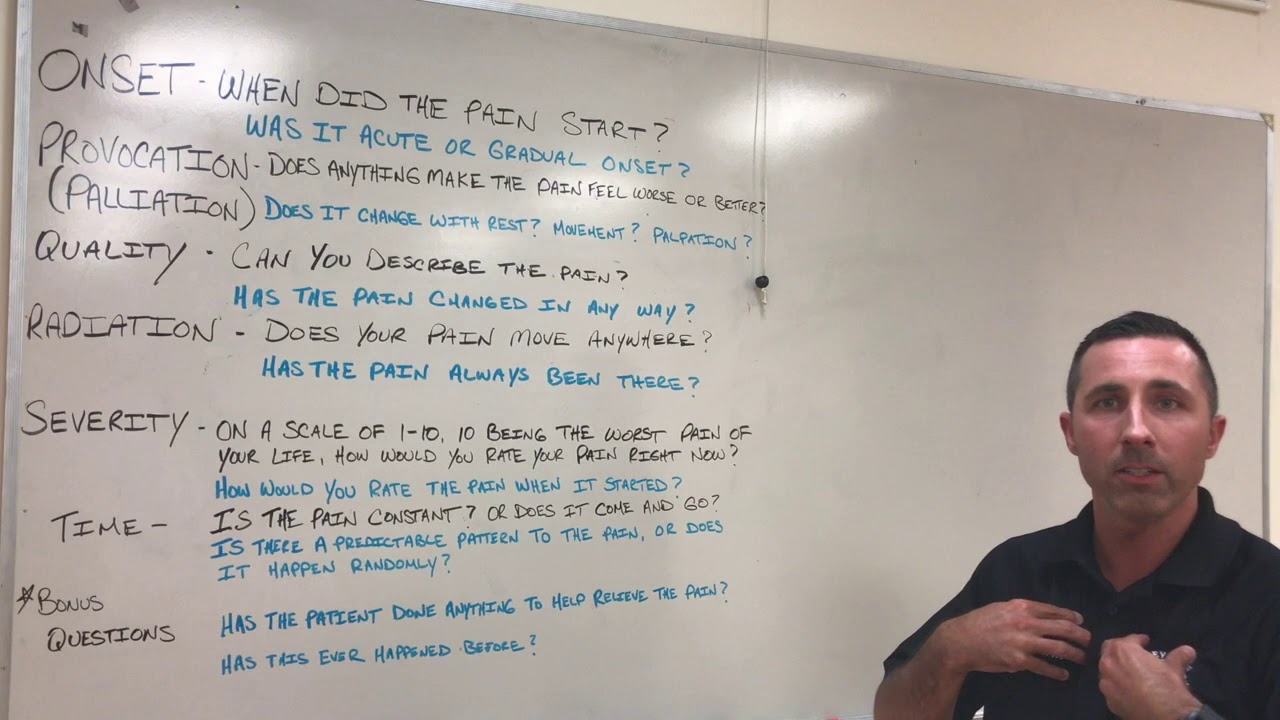 ONSET - WHEN DID THE PAIN START?
WAS IT ACUTE OR GRADUAL ONSET?
PROVOCATION - DOES ANYTHING MAKE THE PAIN FEEL WORSE OR BETTER?
(PALLIATION) DOES IT CHANGE WITH REST? MOVEMENT? PALPATION?
QUALITY - CAN YOU DESCRIBE THE PAIN?
HAS THE PAIN CHANGED IN ANY WAY?
RADIATION - DOES YOUR PAIN MOVE ANYWHERE?
HAS THE PAIN ALWAYS BEEN THERE?
SEVERITY - ON A SCALE OF 1-10, 10 BEING THE WORST PAIN OF
YOUR LIFE, HOW WOULD YOU RATE YOUR PAIN RIGHT NOW?
HOW WOULD YOU RATE THE PAIN WHEN IT STARTED?
TIME - IS THE PAIN CONSTANT? OR DOES IT COME AND GO?
IS THERE A PREDICTABLE PATTERN TO THE PAIN, OR DOES
IT HAPPEN RANDOMLY?
*BONUS
QUESTIONS
HAS THE PATIENT DONE ANYTHING TO HELP RELIEVE THE PAIN?
HAS THIS EVER HAPPENED BEFORE?